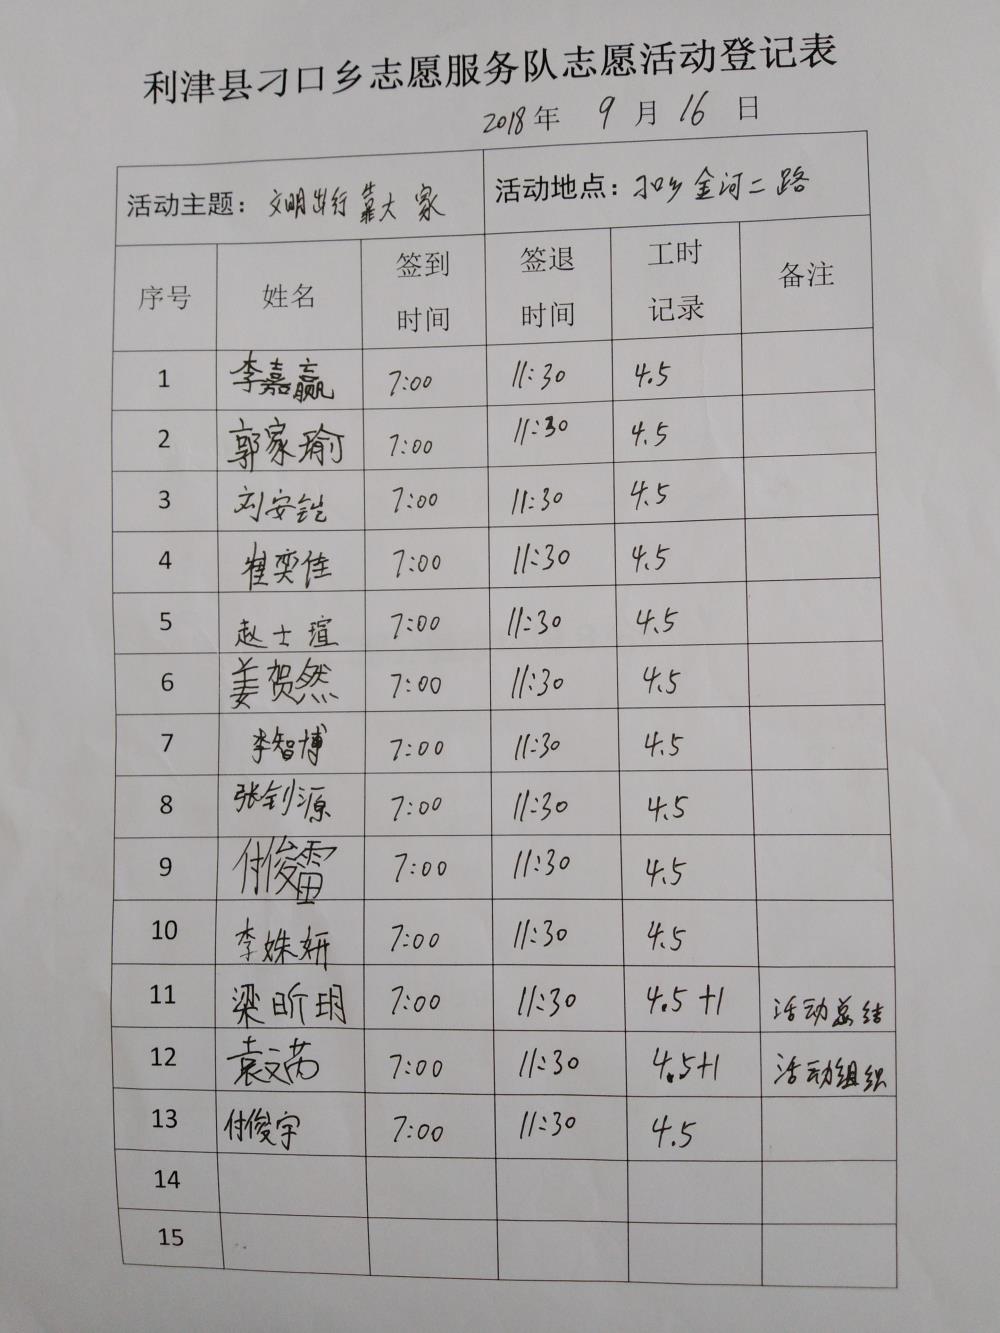 利津县刁口乡志愿服务队志愿活动登记表
2018年 9 月 16 日
活动主题：文明出行靠大家 活动地点：刁口乡金河二路
序号 姓名 签到时间 签退时间 工时记录 备注
1 李嘉赢 7:00 11:30 4.5
2 郭家瑜 7:00 11:30 4.5
3 刘安铠 7:00 11:30 4.5
4 崔奕佳 7:00 11:30 4.5
5 赵士瑄 7:00 11:30 4.5
6 姜贺然 7:00 11:30 4.5
7 李智博 7:00 11:30 4.5
8 张钊源 7:00 11:30 4.5
9 付俊雷 7:00 11:30 4.5
10 李姝妍 7:00 11:30 4.5
11 梁昕玥 7:00 11:30 4.5+1 活动总结
12 袁文芮 7:00 11:30 4.5+1 活动组织
13 付俊宇 7:00 11:30 4.5
14
15